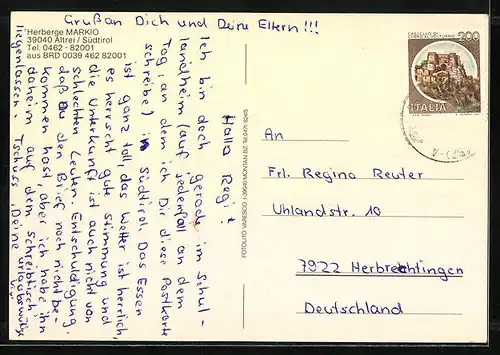 Grüßan Dich und Deine Eltern!!!
Herberge MARKIO
39040 Altrei / Südtirol
Tel. 0462 - 82001
aus BRD 0039 462 82001
Hallo Regi!
Ich bin doch gerade im Schul-
landheim (auf jedenfall an dem
Tag, an dem ich Dir diese Postkarte
schreibe) in Südtirol. Das Essen
ist ganz toll, das Wetter ist herrlich,
es herrscht gute Stimmung und
die Unterkunft ist auch nicht von
schlechten Leuten. Entschuldigung,
daß Du den Brief noch nicht be-
kommen hast, aber ich habe ihn
daheim auf dem Schreibtisch
liegenlassen. Tschüss, Deine
FOTOLITO VARESCO I-39040 MONTAN BZ
200
ITALIA
An
Frl. Regina Reuter
Uhlandstr. 10
7922 Herbrechtingen
Deutschland